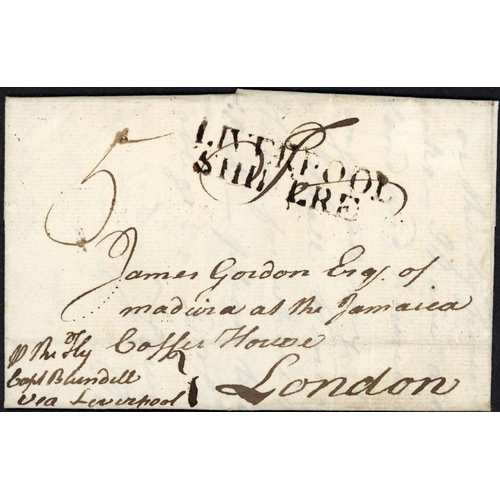 5
LIVERPOOL
SHIP LRE
James Gordon Esqr. of
madeira at the Jamaica
Coffee House
London
the Fly
Capt Blundell
via Liverpool